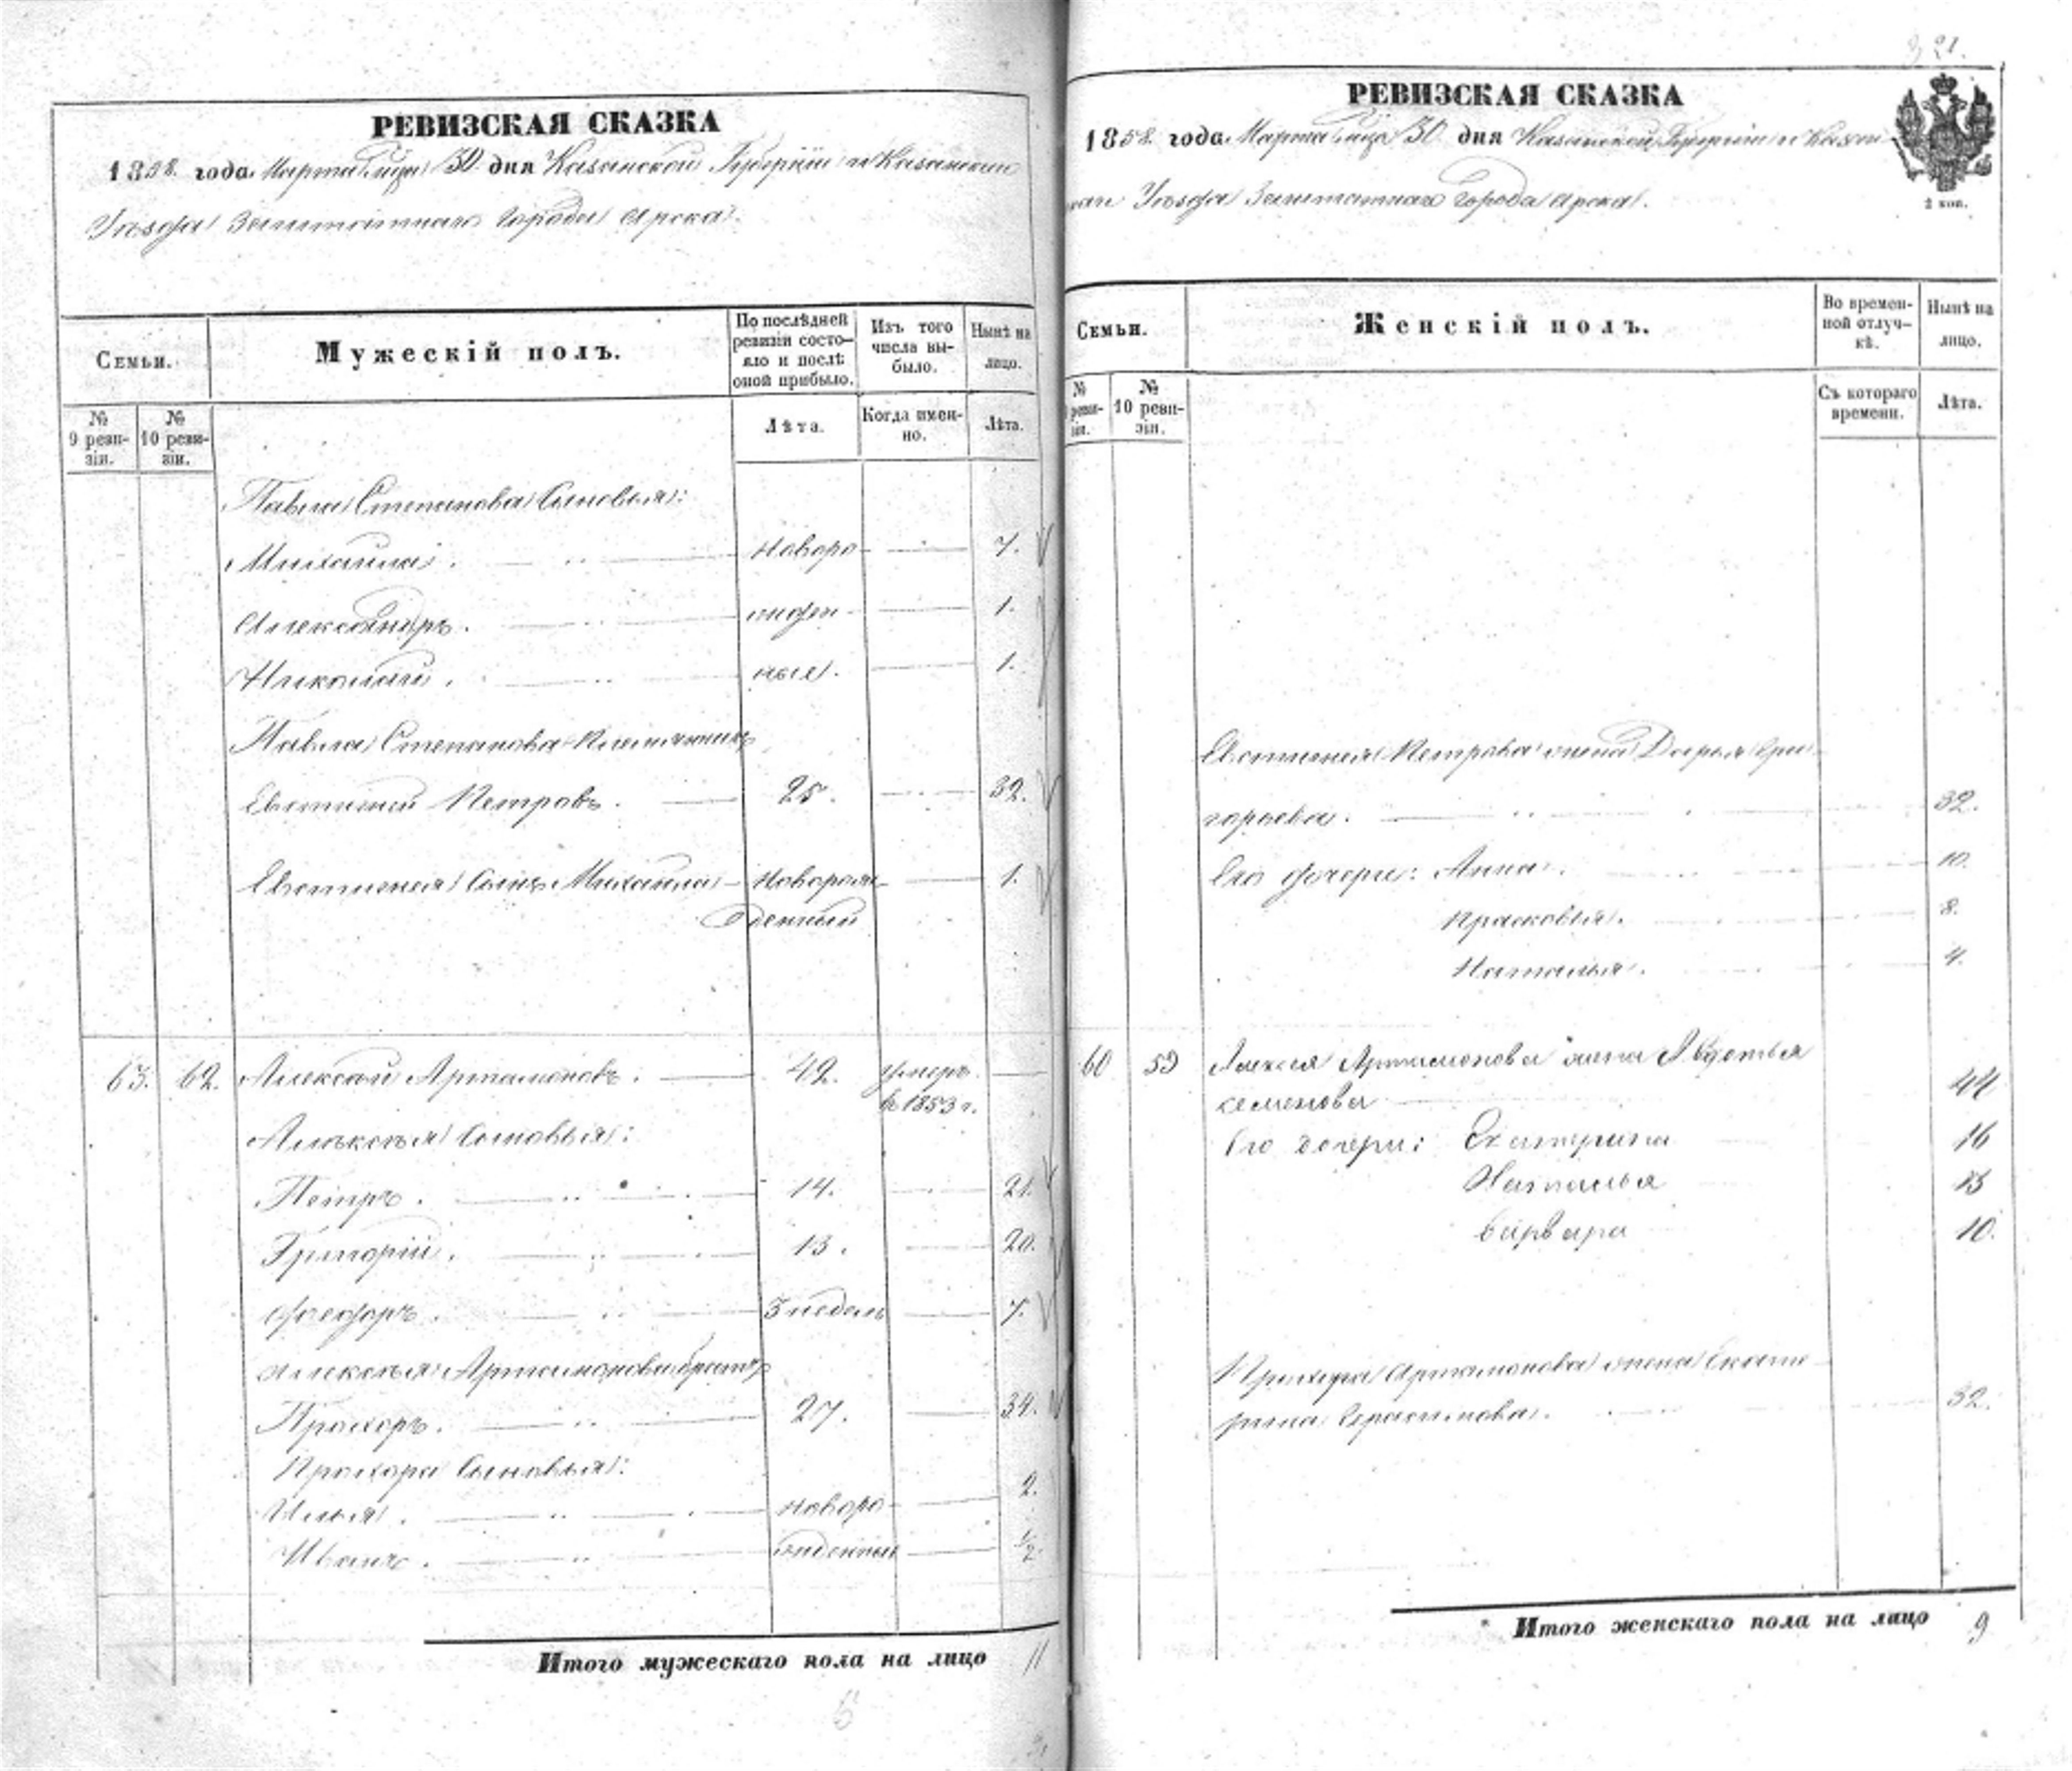 РЕВИЗСКАЯ СКАЗКА
1858. года Марта м-ца 30 дня Казанской Губерніи и Казанскаго
Уѣзда Заштатнаго города Арска.
Семьи.
Мужескій полъ.
По послѣдней ревизіи состояло и послѣ оной прибыло.
Изъ того числа выбыло.
Нынѣ на лицо.
№ 9 ревизіи.
№ 10 ревизіи.
Лѣта.
Когда именно.
Лѣта.
Павла Степанова Сыновья:
Михайла. новоро- 7.
Александръ. жден- 1.
Николай. ные. 1.
Павла Степанова племянникъ
Евстигней Петровъ. 25. 32.
Евстигнея Сынъ Михайла новорож- 1.
денный
63. 62. Алексѣй Артамоновъ. 42. умеръ
въ 1853 г.
Алексѣя Сыновья:
Петръ. 14. 21.
Григорій. 13. 20.
Федоръ. 3 недель 7.
Алексѣя Артамонова братъ
Прохоръ. 27. 34.
Прохора Сыновья:
Илья. новоро- 2.
Иванъ. жденные 1/2.
Итого мужескаго пола на лицо 11
6
321.
РЕВИЗСКАЯ СКАЗКА
1858. года Марта м-ца 30 дня Казанской Губерніи и Казан-
скаго Уѣзда Заштатнаго города Арска.
2 коп.
Семьи.
Женскій полъ.
Во временной отлучкѣ.
Нынѣ на лицо.
№ ревизіи.
№ 10 ревизіи.
Съ котораго времени.
Лѣта.
Евстигнея Петрова жена Дарья Гри-
горьева. 32.
Его дочери: Анна. 10.
Прасковья. 8.
Наталья. 4.
60 59 Алексея Артамонова жена Авдотья
семенова 44
Его дочери: Екатерина 16
Наталья 13
Варвара 10.
Прохора Артамонова жена Екате-
рина Герасимова. 32.
Итого женскаго пола на лицо 9